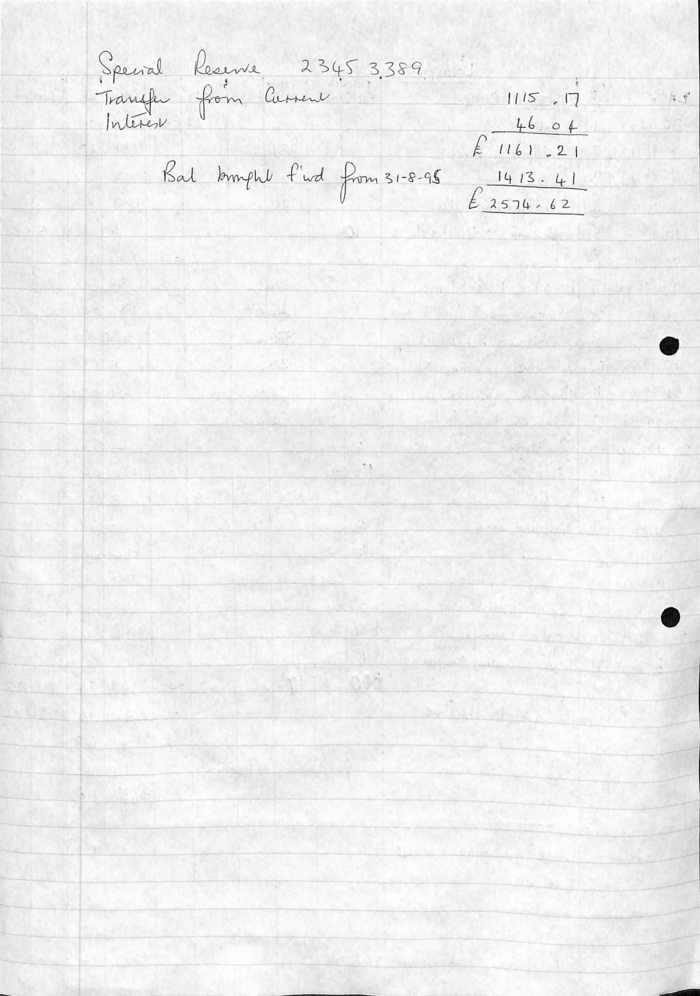 Special Reserve 2345 3389
Transfer from Current 1115.17
Interest 46.04
£ 1161.21
Bal brought f'wd from 31-8-95 1413.41
£ 2574.62